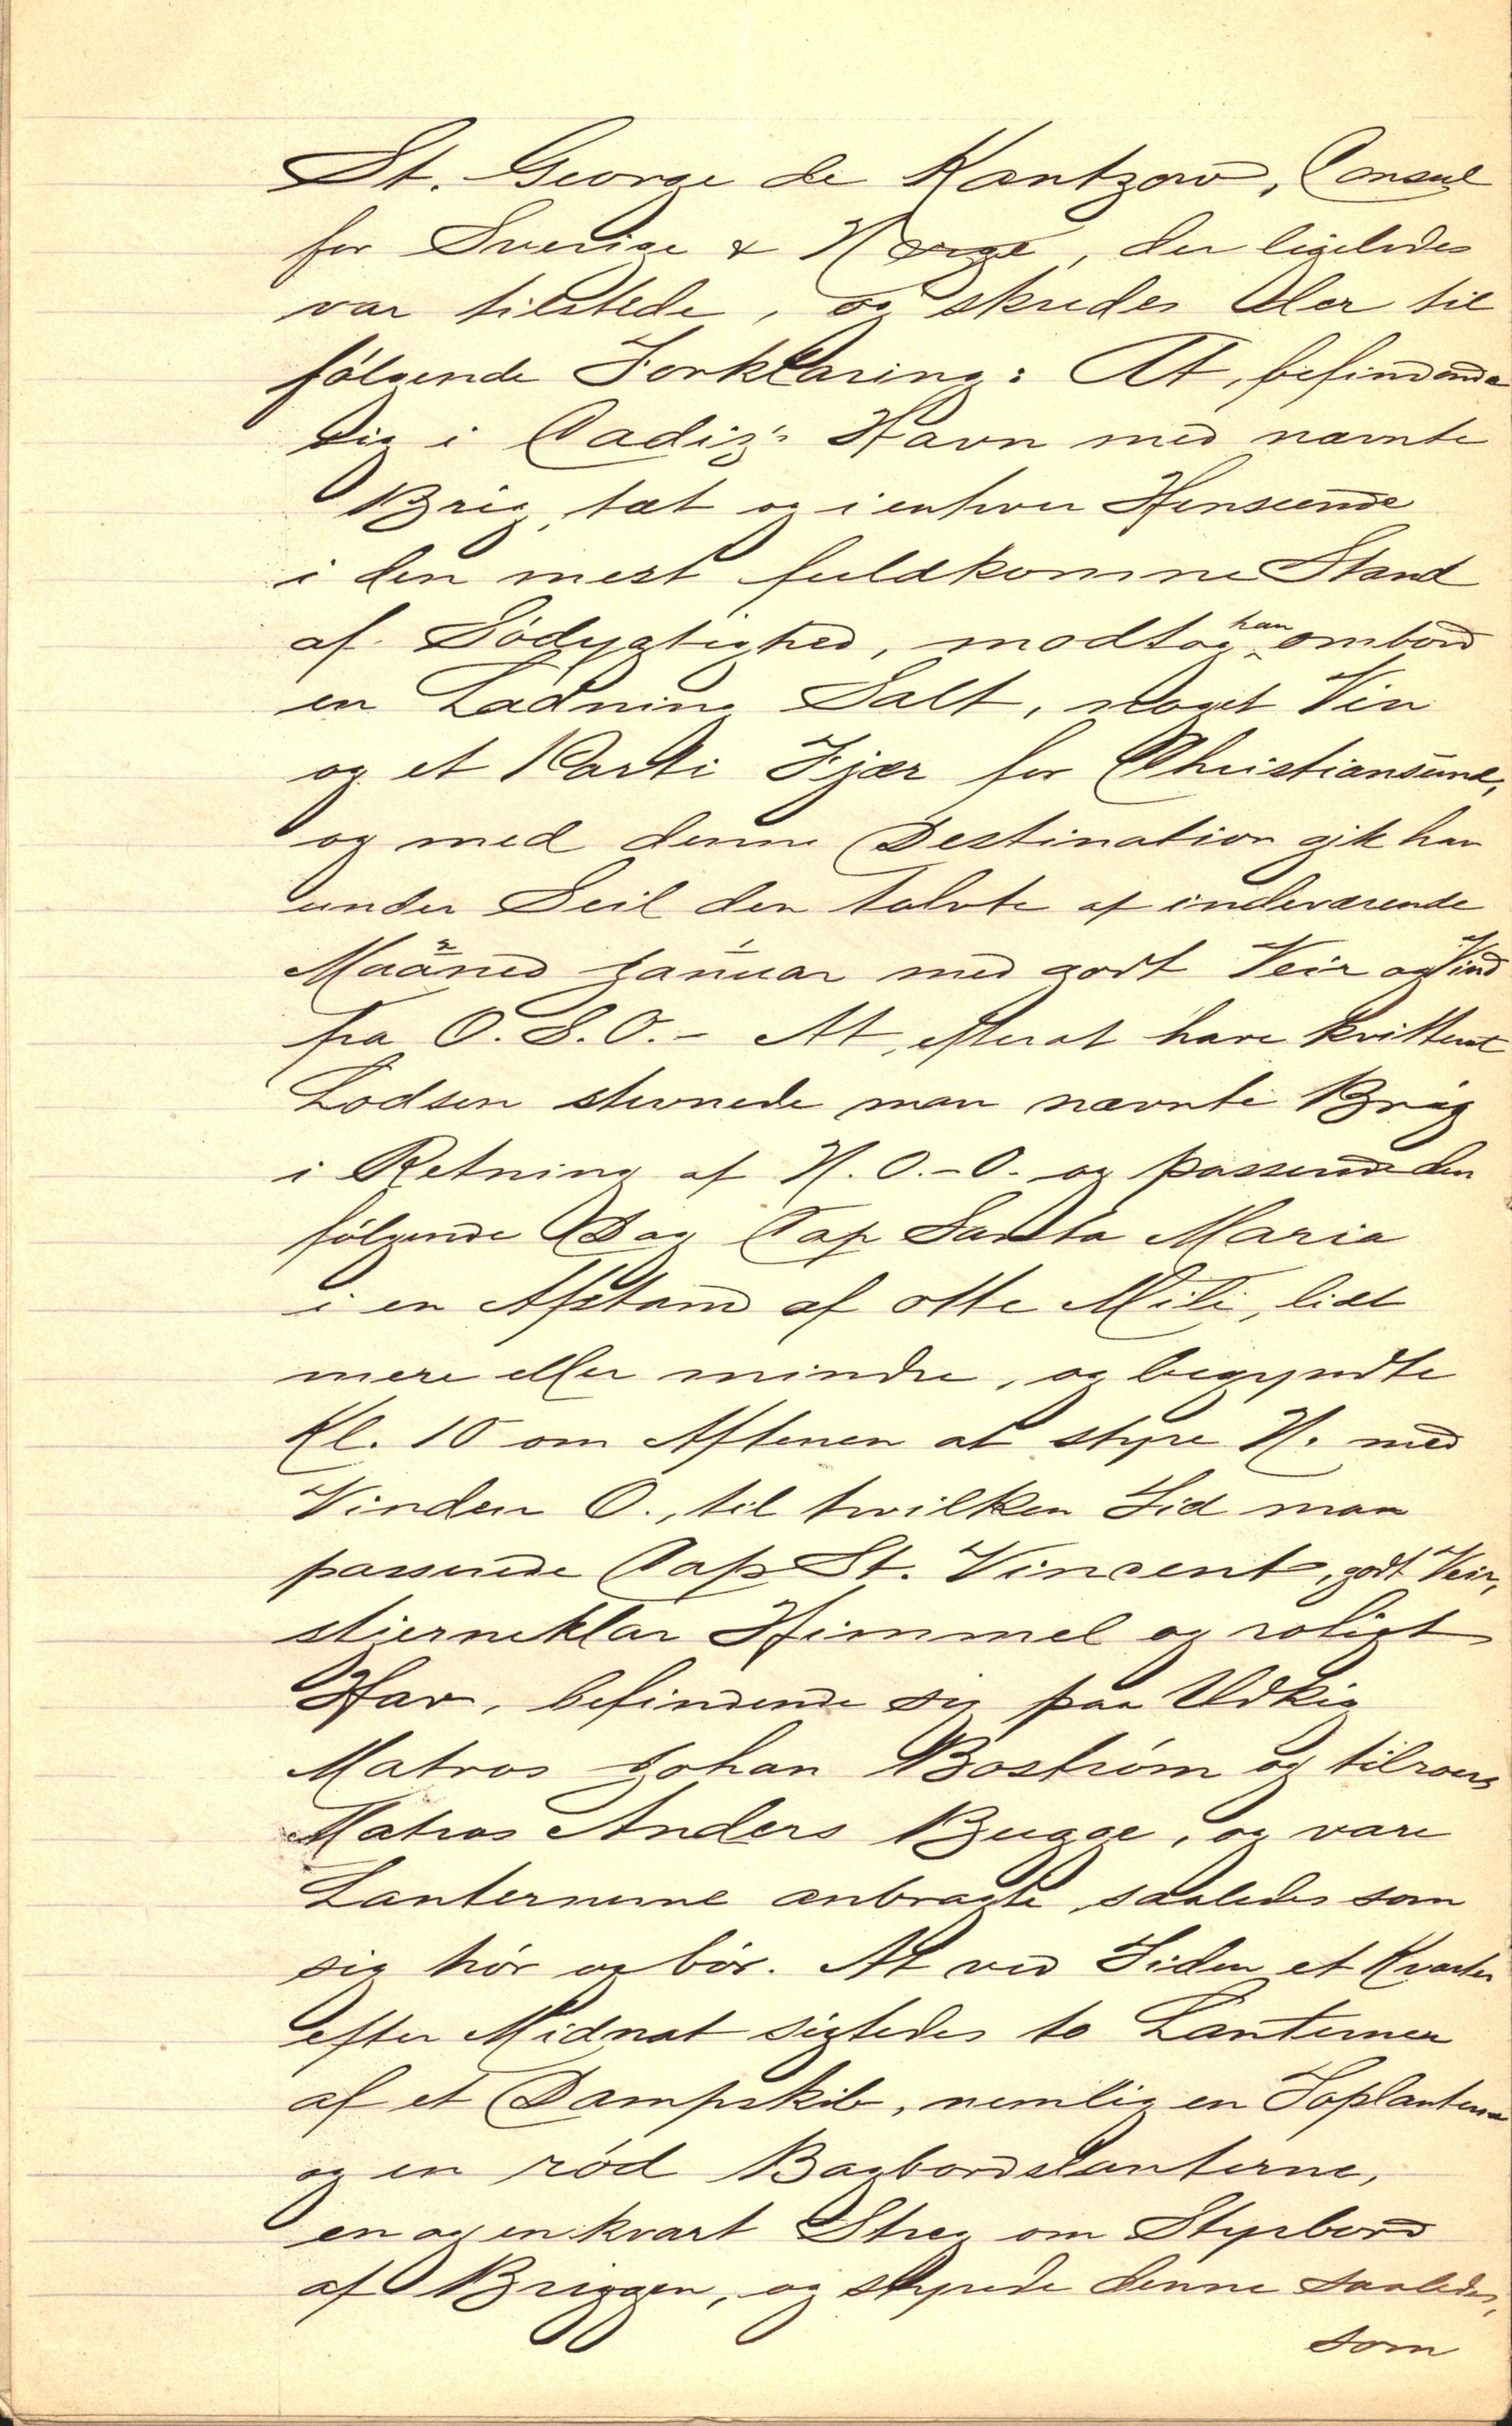 St. George de Kantzow, Consul
for Sverige & Norge, der ligeledes
var tilstede, og skredes der til
følgende Forklaring: At, befindende
sig i Cadiz's Havn med nævnte
Brig, tæt og i enhver Henseende
i den mest fuldkomne Stand
af Södygtighed, modtog han ombord
en Ladning Salt, noget Vin
og et Parti Fjær for Christiansund,
og med denne Destination gik han
under Seil den tolvte af indeværende
Maaned Januar med godt Veir og Vind
fra O.S.O. – At, efterat have kvitteret
Lodsen stevnede man nævnte Brig
i Retning af N.O.-O. og passerede den
følgende Dag Cap Santa Maria
i en Afstand af otte Mile, lidt
mere eller mindre, og begyndte
Kl. 10 om Aftenen at styre N. med
Vinden O., til hvilken Tid man
passerede Cap St. Vincent, godt Veir,
stjerneklar Himmel og roligt
Hav, befindende sig paa Udkig
Matros Johan Boström og tilroers
Matros Anders Bugge, og vare
Lanternerne anbragte, saaledes som
sig hör og bör. At ved Tiden et Kvarter
efter Midnat sigtedes to Lanterner
af et Dampskib, nemlig en Toplanterne
og en röd Bagbordslanterne,
en og en kvart Streg om Styrbord
af Briggen, og styrede denne saaledes,
som